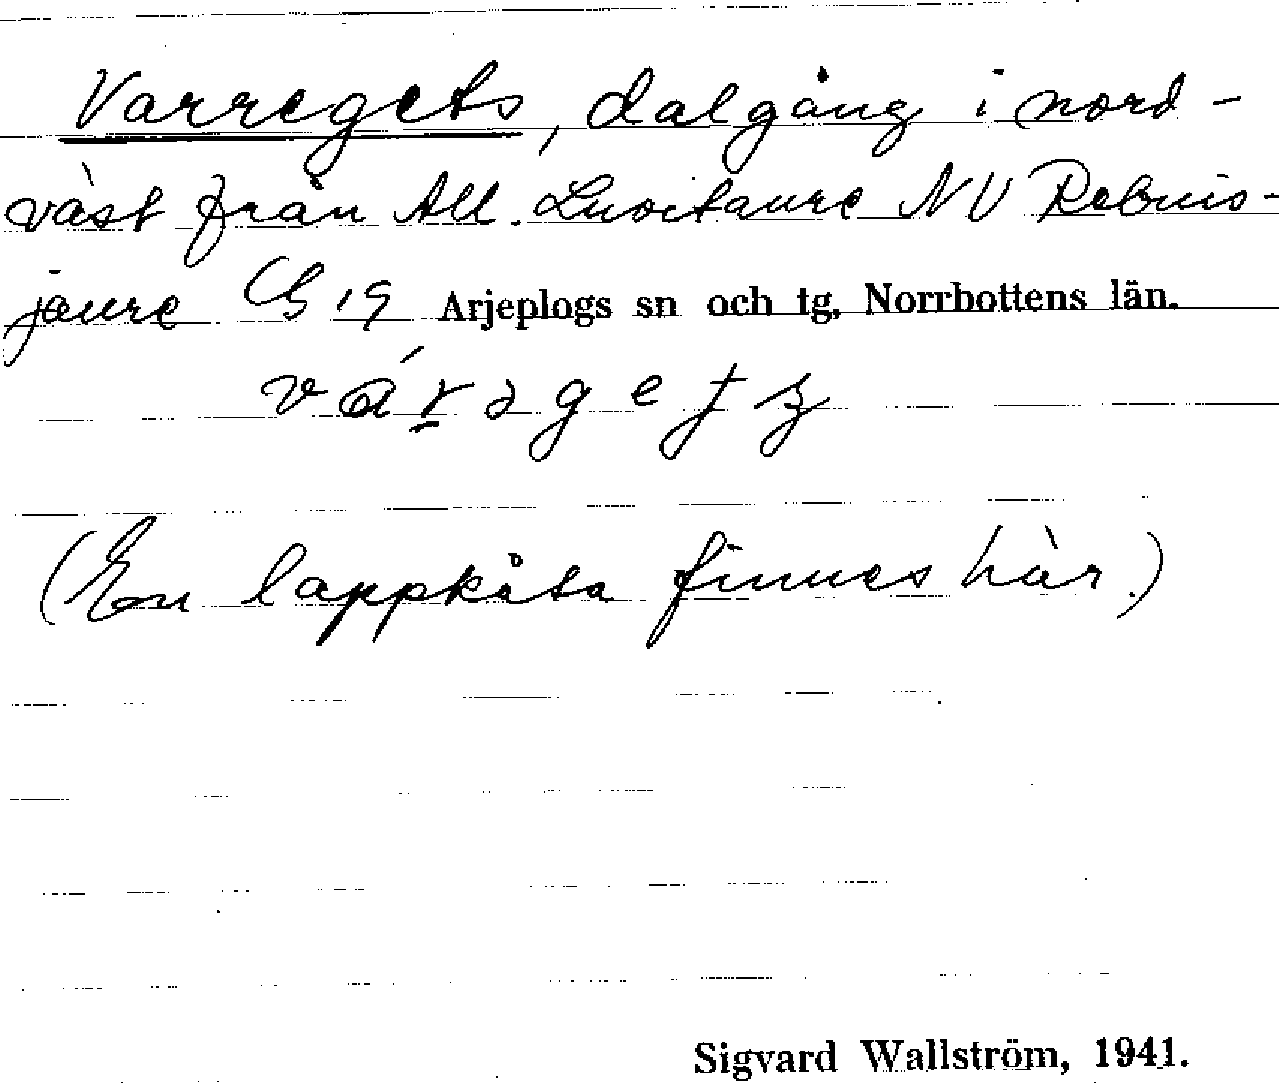 Varregets, dalgång i nord-
väst från All. Luoitaure NV Rebnis-
jaure C 19 Arjeplogs sn och tg. Norrbottens län.
várəgets
(En lappkåta finnes här.)
Sigvard Wallström, 1941.